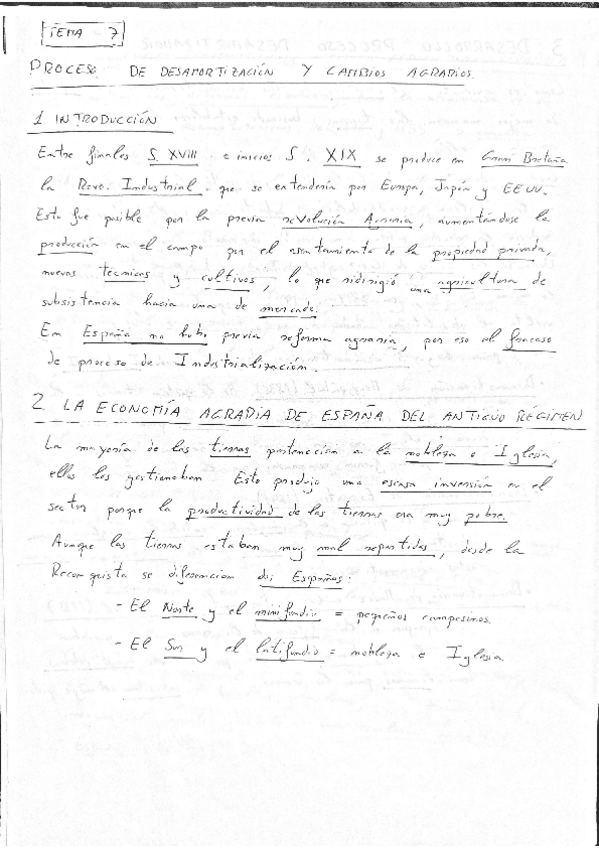 TEMA - 7
PROCESO DE DESAMORTIZACIÓN Y CAMBIOS AGRARIOS.
1 INTRODUCCIÓN
Entre finales S. XVIII e inicios S. XIX se produce en Gran Bretaña
la Revo. Industrial que se extendería por Europa, Japón y EEUU.
Esto fue posible por la previa revolución Agraria, aumentándose la
producción en el campo por el asentamiento de la propiedad privada,
nuevas técnicas y cultivos, lo que ridirigió una agricultura de
subsistencia hacia una de mercado.
En España no hubo previa reforma agraria, por eso el fracaso
de proceso de Industrialización.
2 LA ECONOMÍA AGRARIA DE ESPAÑA DEL ANTIGUO RÉGIMEN
La mayoría de las tierras pertenecían a la nobleza e Iglesia,
ellos les gestionaban Esto produjo una escasa inversión en el
sector porque la productividad de las tierras era muy pobre.
Aunque las tierras estaban muy mal repartidas, desde la
Reconquista se diferencian dos Españas:
- El Norte y el minifundio = pequeños campesinos.
- El Sur y el latifundio = nobleza e Iglesia